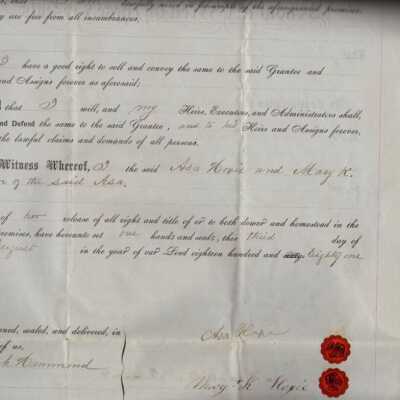 lawfully seized in fee-simple of the aforegranted premises
ey are free from all incumbrances,
I have a good right to sell and convey the same to the said Grantee and
and Assigns forever as aforesaid;
that I will, and my Heirs, Executors, and Administrators shall,
nd Defend the same to the said Grantee, and to his Heirs and Assigns forever,
the lawful claims and demands of all persons.
Witness Whereof, I the said Asa Hoxie and Mary K.
of the said Asa.
of her release of all right and title of or to both dower and homestead in the
remises, have hereunto set our hands and seals, this third day of
August in the year of our Lord eighteen hundred and eighty one
ned, sealed, and delivered, in
of us.
Hammond
Asa Hoxie
Mary K Hoxie